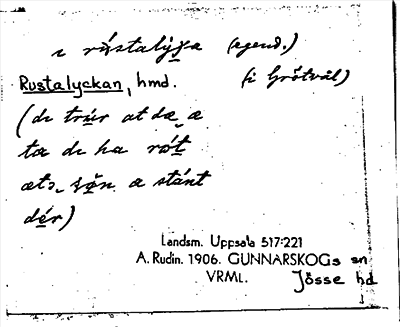 ı rústalýka (egend.)
Rustalyckan, hmd. (i Grötvål)
(dı trúr at dæ æ
ta dı ha rót
ætə sǫ́n a stánt
dér)
Landsm. Uppsala 517:221
A. Rudin. 1906. GUNNARSKOGs sn
VRML. Jösse hd